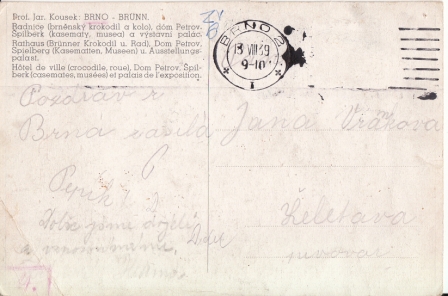 Prof. Jar. Kousek: BRNO - BRÜNN.
Radnice (brněnský krokodil a kolo), dóm Petrov,
Špilberk (kasematy, musea) a výstavní palác.
Rathaus (Brünner Krokodil u. Rad), Dom Petrov,
Spielberg (Kasematten, Museen) u. Ausstellungs-
palast.
Hôtel de ville (crocodile, roue), Dom Petrov, Špil-
berk (casemates, musées) et palais de l'exposition.
BRNO 2
13 VIII 39
9-10
1
Pozdrav z
Brna zasílá
Pepík
Dobře jsme dojeli
a
Jana Vráhova
Želetava
pivovar
4.